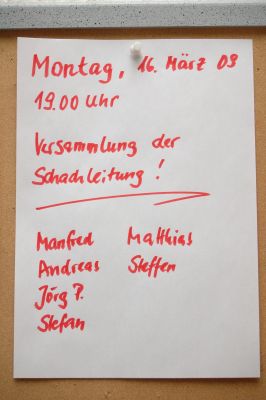 Montag, 16. März 09
19.00 Uhr
Versammlung der
Schachleitung!
Manfred Matthias
Andreas Steffen
Jörg P.
Stefan